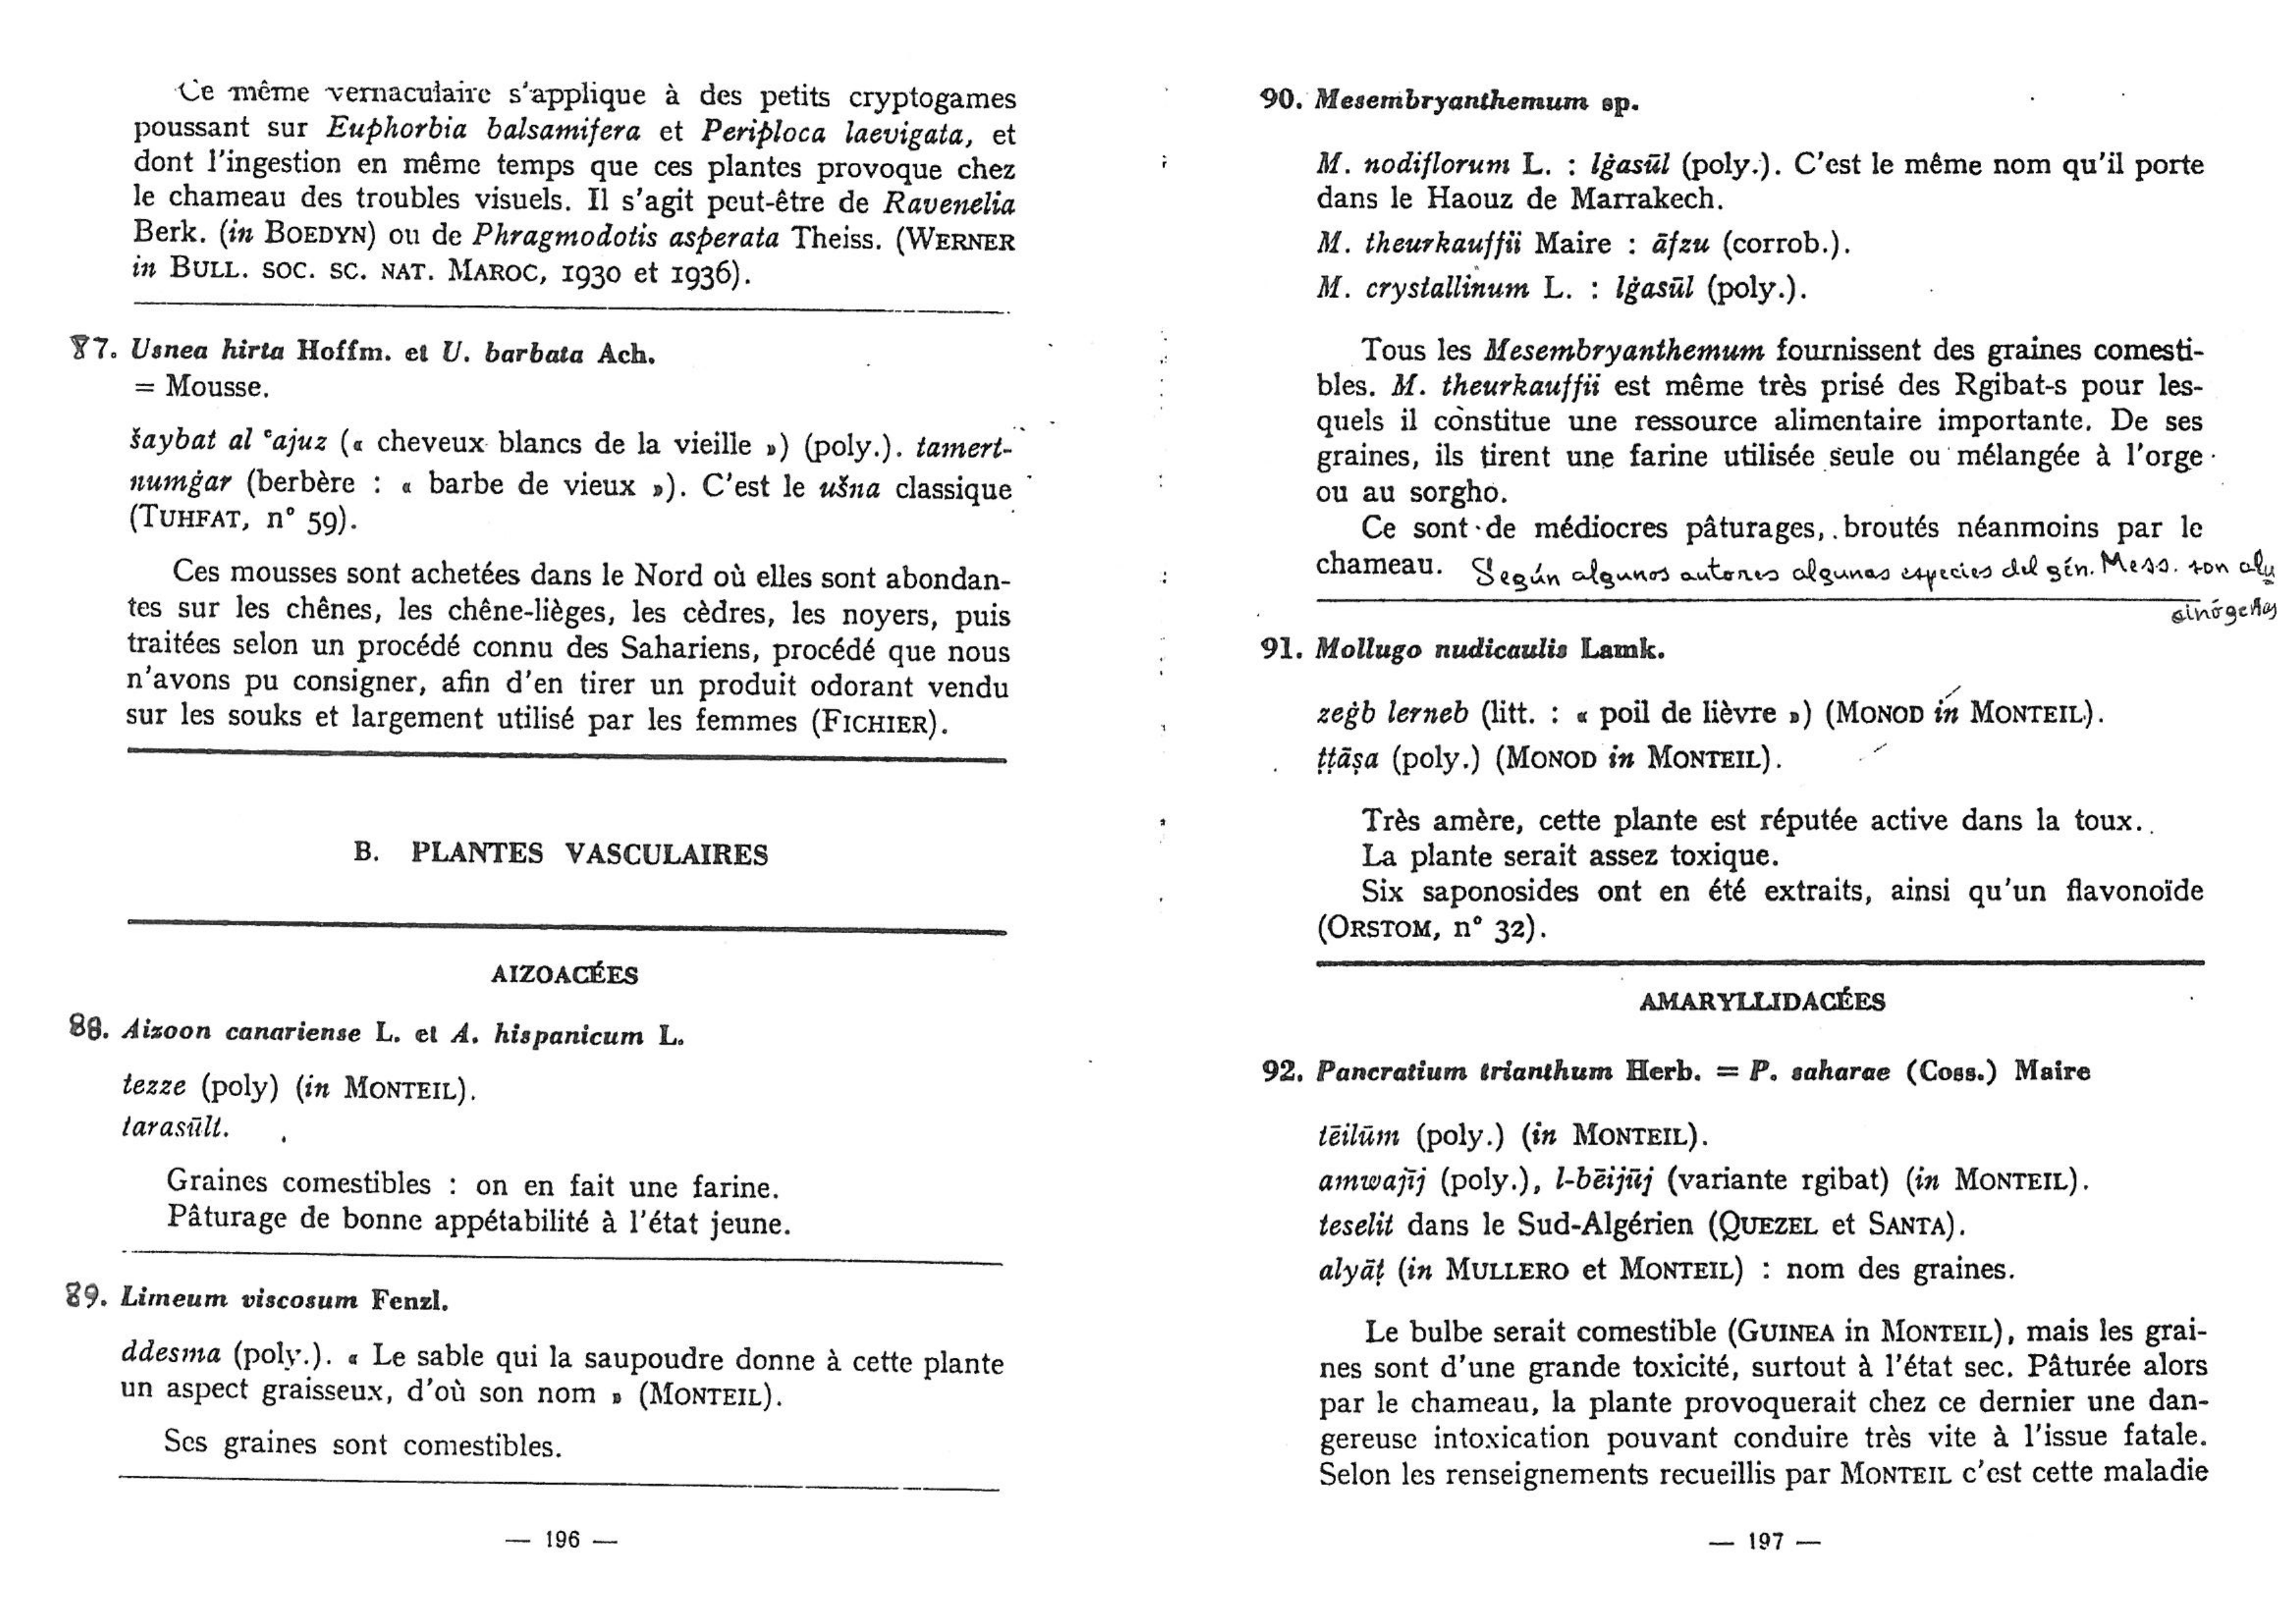 Ce même vernaculaire s'applique à des petits cryptogames
poussant sur Euphorbia balsamifera et Periploca laevigata, et
dont l'ingestion en même temps que ces plantes provoque chez
le chameau des troubles visuels. Il s'agit peut-être de Ravenelia
Berk. (in BOEDYN) ou de Phragmodotis asperata Theiss. (WERNER
in BULL. SOC. SC. NAT. MAROC, 1930 et 1936).
87. Usnea hirta Hoffm. et U. barbata Ach.
= Mousse.
šaybat al ʿajuz (« cheveux blancs de la vieille ») (poly.). tamert-
numġar (berbère : « barbe de vieux »). C'est le ušna classique
(TUHFAT, n° 59).
Ces mousses sont achetées dans le Nord où elles sont abondan-
tes sur les chênes, les chêne-lièges, les cèdres, les noyers, puis
traitées selon un procédé connu des Sahariens, procédé que nous
n'avons pu consigner, afin d'en tirer un produit odorant vendu
sur les souks et largement utilisé par les femmes (FICHIER).
B. PLANTES VASCULAIRES
AIZOACÉES
88. Aizoon canariense L. et A. hispanicum L.
tezze (poly) (in MONTEIL).
tarasūlt.
Graines comestibles : on en fait une farine.
Pâturage de bonne appétabilité à l'état jeune.
89. Limeum viscosum Fenzl.
ddesma (poly.). « Le sable qui la saupoudre donne à cette plante
un aspect graisseux, d'où son nom » (MONTEIL).
Ses graines sont comestibles.
— 196 —
90. Mesembryanthemum sp.
M. nodiflorum L. : lġasūl (poly.). C'est le même nom qu'il porte
dans le Haouz de Marrakech.
M. theurkauffii Maire : āfzu (corrob.).
M. crystallinum L. : lġasūl (poly.).
Tous les Mesembryanthemum fournissent des graines comesti-
bles. M. theurkauffii est même très prisé des Rgibat-s pour les-
quels il constitue une ressource alimentaire importante. De ses
graines, ils tirent une farine utilisée seule ou mélangée à l'orge
ou au sorgho.
Ce sont de médiocres pâturages, broutés néanmoins par le
chameau. Según algunos autores algunas especies del gén. Mess. son alu
cinógenas
91. Mollugo nudicaulis Lamk.
zeġb lerneb (litt. : « poil de lièvre ») (MONOD in MONTEIL).
ṭṭāṣa (poly.) (MONOD in MONTEIL).
Très amère, cette plante est réputée active dans la toux.
La plante serait assez toxique.
Six saponosides ont en été extraits, ainsi qu'un flavonoïde
(ORSTOM, n° 32).
AMARYLLIDACÉES
92. Pancratium trianthum Herb. = P. saharae (Coss.) Maire
tēilūm (poly.) (in MONTEIL).
amwajīj (poly.), l-bēijūj (variante rgibat) (in MONTEIL).
teselit dans le Sud-Algérien (QUEZEL et SANTA).
alyāṭ (in MULLERO et MONTEIL) : nom des graines.
Le bulbe serait comestible (GUINEA in MONTEIL), mais les grai-
nes sont d'une grande toxicité, surtout à l'état sec. Pâturée alors
par le chameau, la plante provoquerait chez ce dernier une dan-
gereuse intoxication pouvant conduire très vite à l'issue fatale.
Selon les renseignements recueillis par MONTEIL c'est cette maladie
— 197 —